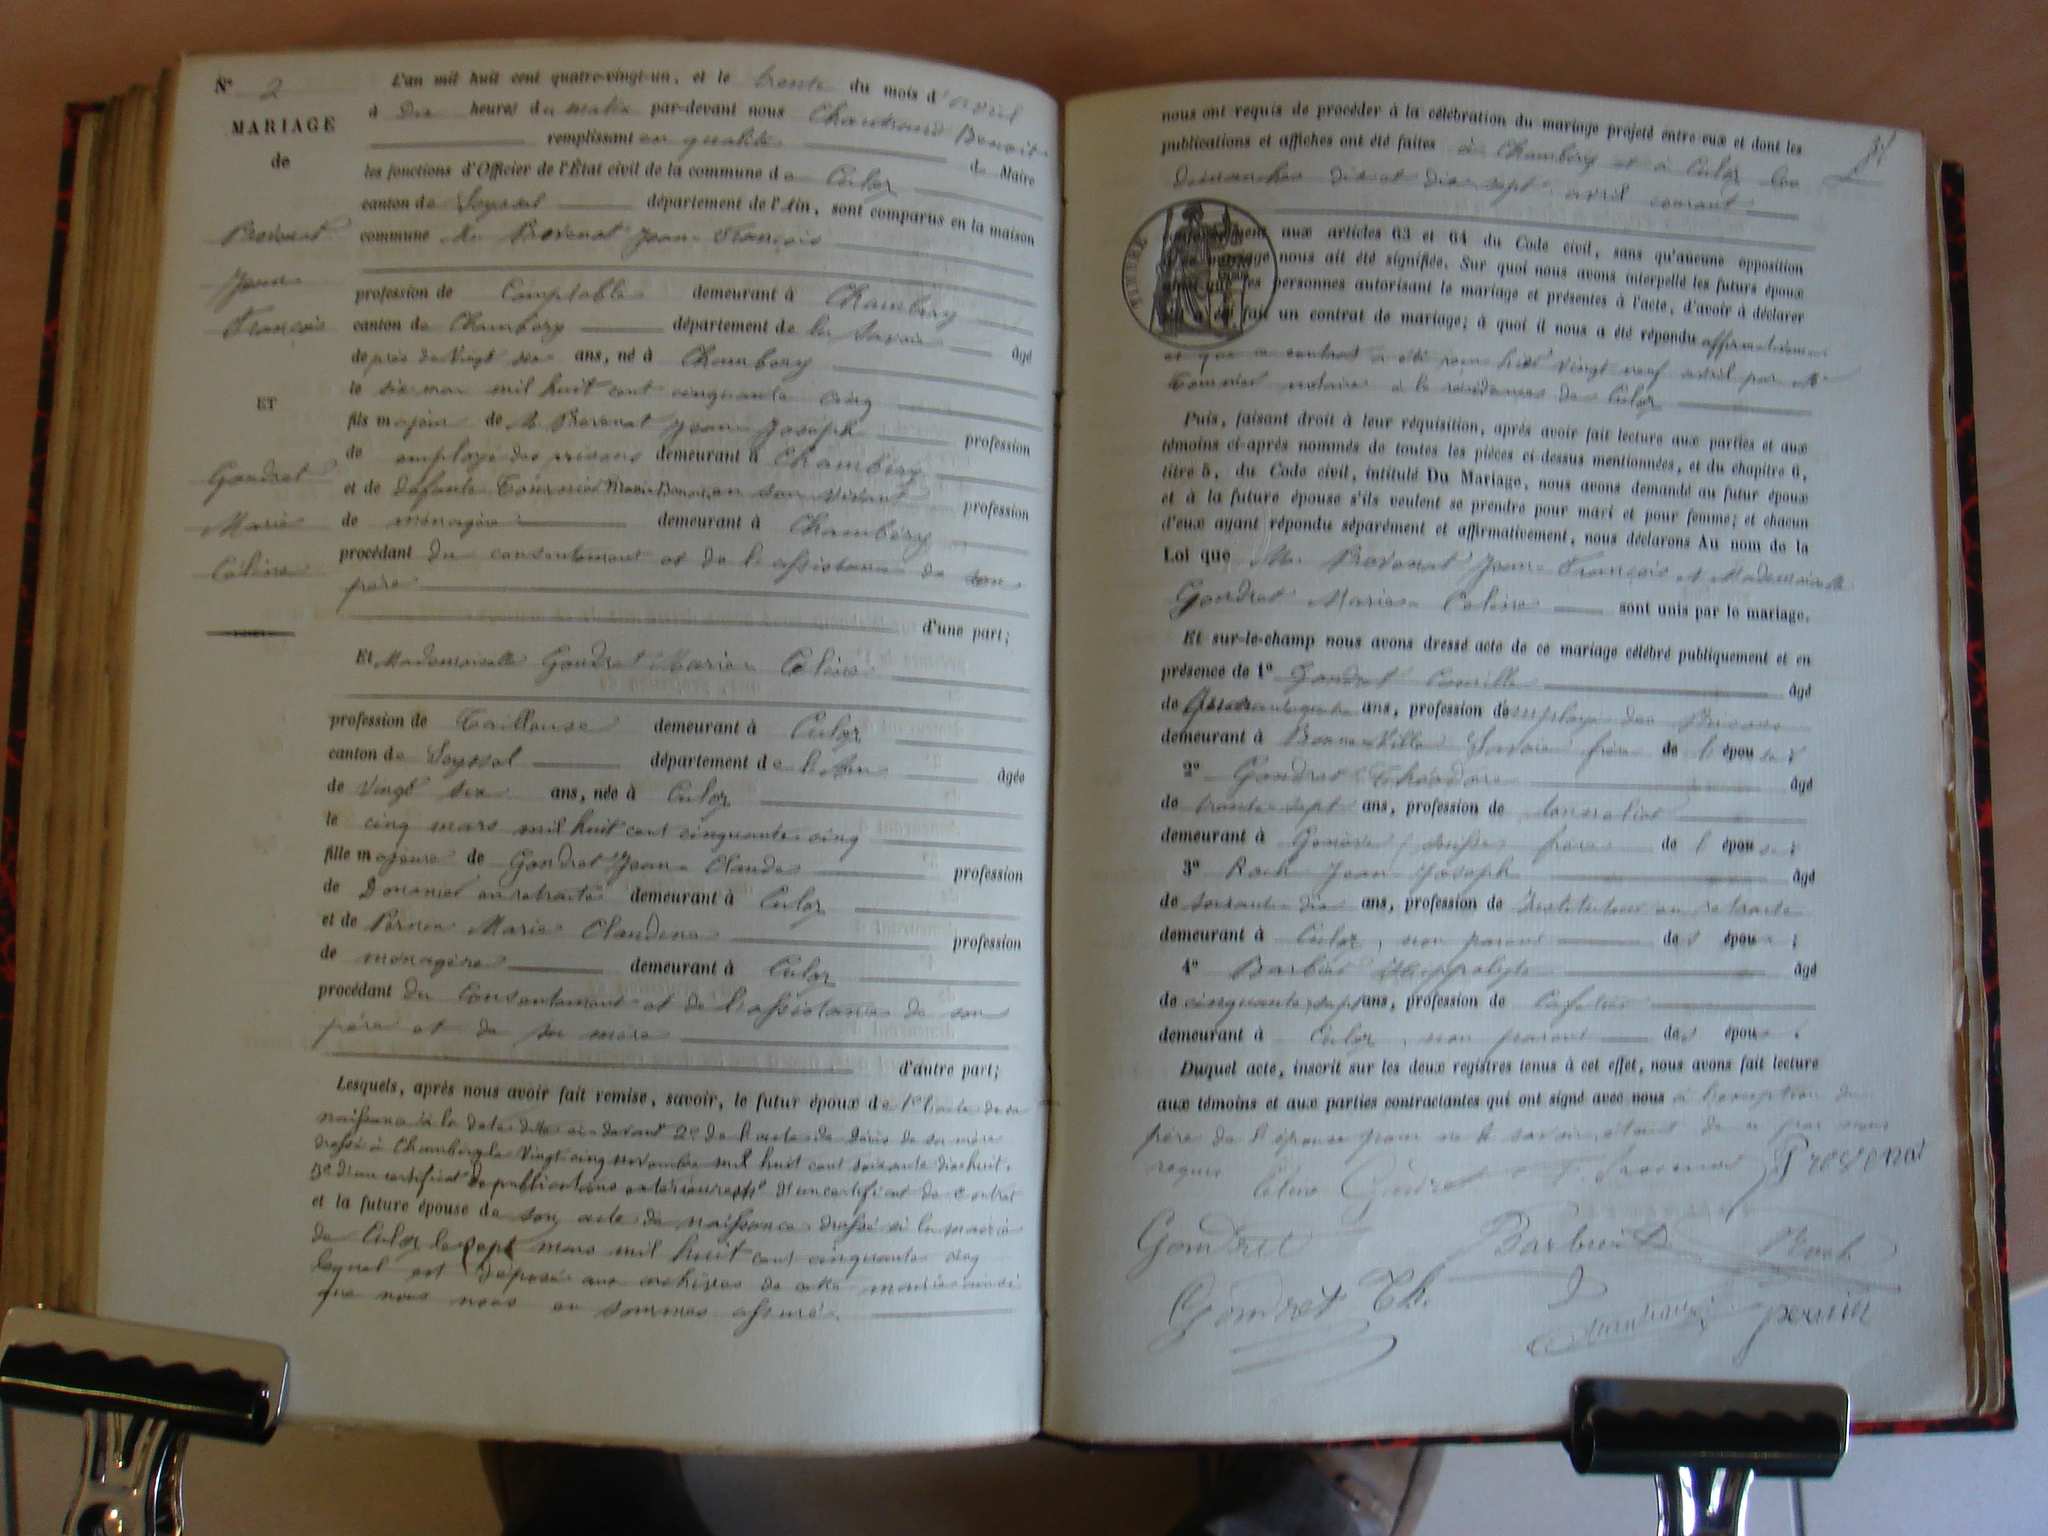 N° 2
MARIAGE
de
Provenat
Jean
François
ET
Gondret
Marie
Céline
L'an mil huit cent quatre-vingt-un, et le trente du mois d'avril
à Dix heures du matin par-devant nous Chantraud Benoit
remplissant en qualité de Maire
les fonctions d'Officier de l'État civil de la commune de Culoz
canton de Seyssel département de l'Ain, sont comparus en la maison
commune Mr Provenat Jean-François
profession de Comptable demeurant à Chambéry
canton de Chambéry département de la Savoie âgé
de près de Vingt six ans, né à Chambéry
le six mai mil huit cent cinquante cinq
fils majeur de M. Provenat Jean-Joseph profession
de employé des prisons demeurant à Chambéry
et de défunte Tournier Marie en son vivant profession
de ménagère demeurant à Chambéry
procédant du consentement et de l'assistance de son
père
d'une part;
Et Mademoiselle Gondret Marie Céline
profession de Tailleuse demeurant à Culoz
canton de Seyssel département de l'Ain âgée
de vingt six ans, née à Culoz
le cinq mars mil huit cent cinquante cinq
fille majeure de Gondret Jean-Claude profession
de Douanier en retraite demeurant à Culoz
et de Perrin Marie Claudine profession
de ménagère demeurant à Culoz
procédant du Consentement et de l'assistance de son
père et de sa mère
d'autre part;
Lesquels, après nous avoir fait remise, savoir, le futur époux de 1° l'acte de sa
naissance à la date dite ci-devant 2° de l'acte de Décès de sa mère
dressé à Chambéry le Vingt cinq novembre mil huit cent soixante dix huit.
3° d'un certificat de publications extérieures d'un certificat de contrat
et la future épouse de son acte de naissance dressé à la mairie
de Culoz le sept mars mil huit cent cinquante cinq
lequel est déposé aux archives de cette mairie ainsi
que nous nous en sommes assuré.
nous ont requis de procéder à la célébration du mariage projeté entre eux et dont les
publications et affiches ont été faites à Chambéry et à Culoz les
dimanches dix et dix sept avril courant
TIMBRE
aux articles 63 et 64 du Code civil, sans qu'aucune opposition
mariage nous ait été signifiée. Sur quoi nous avons interpellé les futurs époux
que les personnes autorisant le mariage et présentes à l'acte, d'avoir à déclarer
fait un contrat de mariage; à quoi il nous a été répondu affirmativement
et que ce contrat a été reçu hier vingt neuf avril par Me
notaire à la résidence de Culoz
Puis, faisant droit à leur réquisition, après avoir fait lecture aux parties et aux
témoins ci-après nommés de toutes les pièces ci-dessus mentionnées, et du chapitre 6,
titre 5, du Code civil, intitulé Du Mariage, nous avons demandé au futur époux
et à la future épouse s'ils veulent se prendre pour mari et pour femme; et chacun
d'eux ayant répondu séparément et affirmativement, nous déclarons Au nom de la
Loi que M. Provenat Jean-François et Mademoiselle
Gondret Marie-Céline sont unis par le mariage.
Et sur-le-champ nous avons dressé acte de ce mariage célébré publiquement et en
présence de 1° Gondret Camille âgé
de ans, profession d'employé des Prisons
demeurant à Bonneville Savoie frère de l'épouse;
2° Gondret Théodore âgé
de trente-sept ans, profession de
demeurant à Genève (suisse) frère de l'épouse;
3° Roch Jean-Joseph âgé
de soixante-dix ans, profession de Instituteur en retraite
demeurant à Culoz, non parent des époux;
4° Barbier Hippolyte âgé
de cinquante-sept ans, profession de Cafetier
demeurant à Culoz, non parent des époux.
Duquel acte, inscrit sur les deux registres tenus à cet effet, nous avons fait lecture
aux témoins et aux parties contractantes qui ont signé avec nous à l'exception du
père de l'épouse pour ne le savoir, étant de ce par nous
requis
Céline Gondret F. Provenat Provenat
Gondret Barbier Roch
Gondret Th. Chantraud perrin